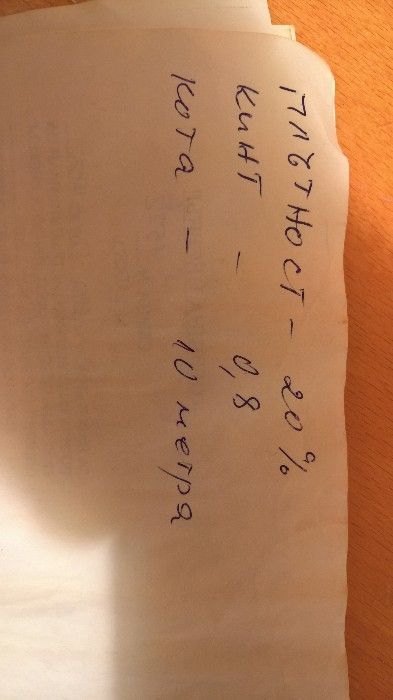 Плътност - 20%
кинт - 0,8
кота - 10 метра